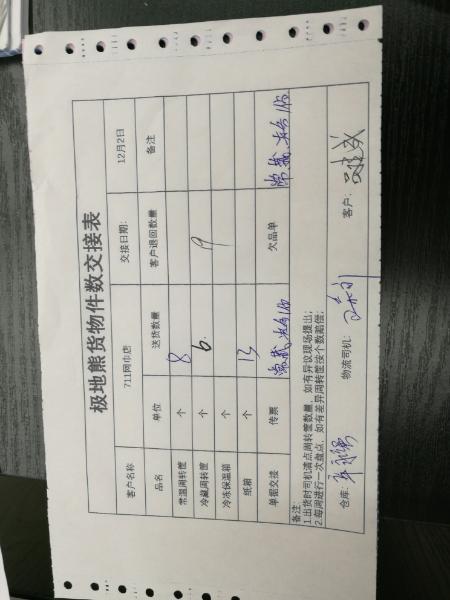 极地熊货物件数交接表
客户名称 711网巾店 交接日期: 12月2日
品名 单位 送货数量 客户退回数量 备注
常温周转筐 个 8
冷藏周转筐 个 6 9
冷冻保温箱 个
纸箱 个 13
单据交接 传票 常藏.冰各1份 欠品单 常藏.冰各1份
备注:
1.出货时司机清点周转筐数量,如有异议现场提出;
2.每周进行一次盘点,如有差异周转筐按个数赔偿;
仓库: 物流司机: 客户: